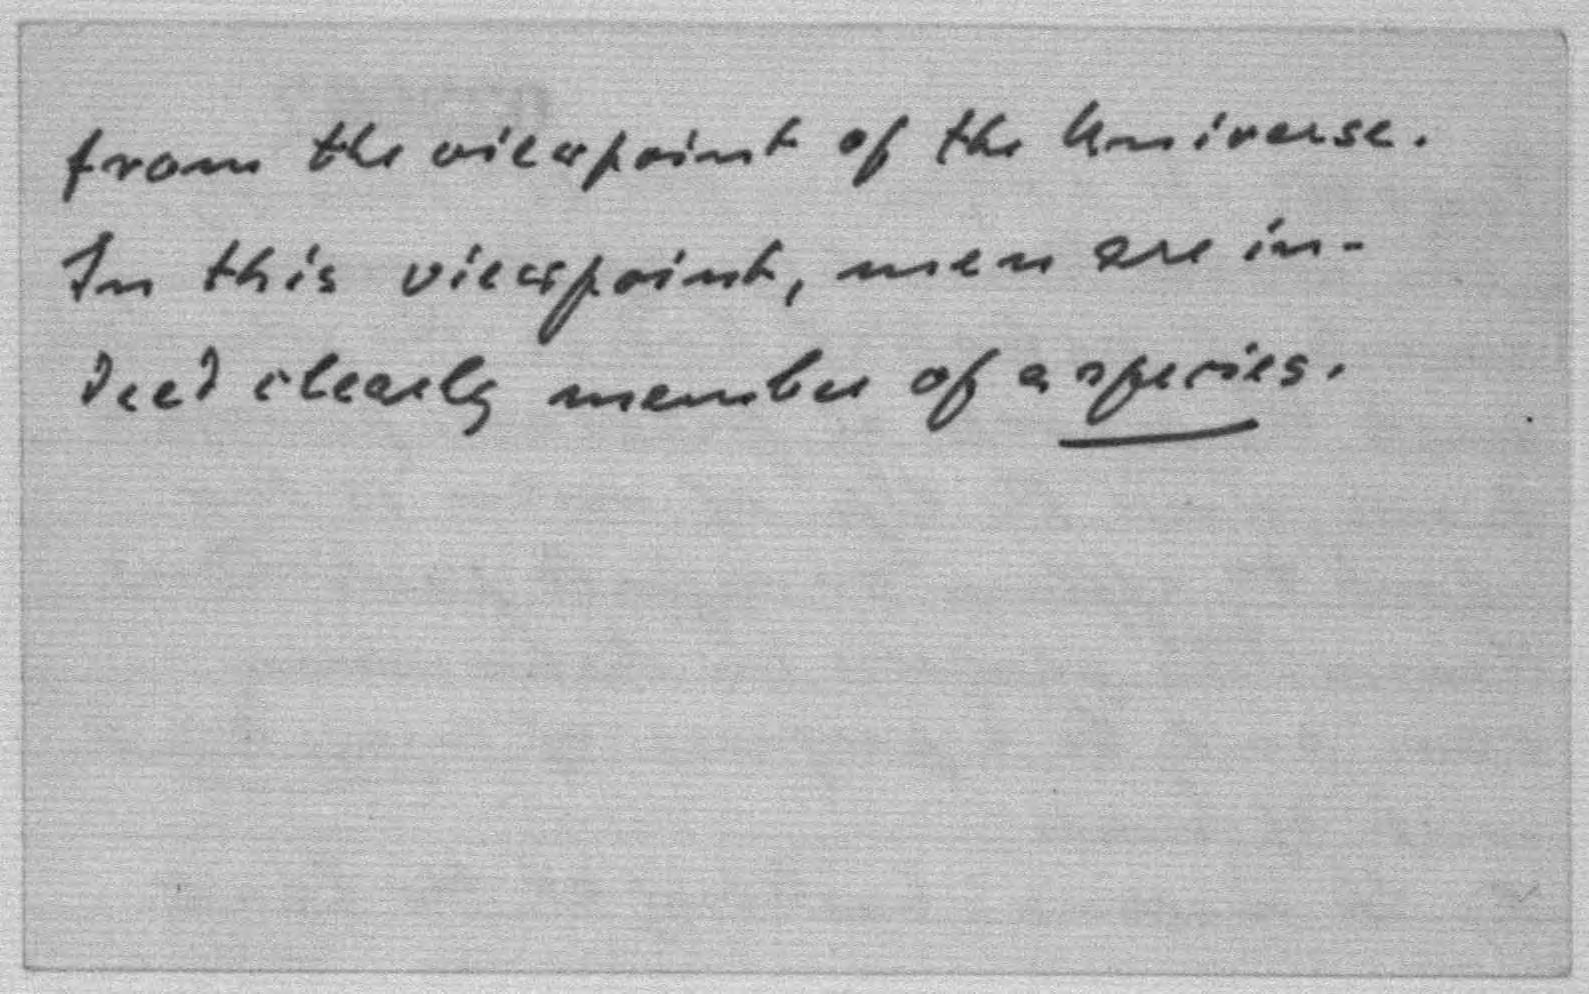 from the viewpoint of the Universe.
In this viewpoint, men are in-
deed clearly member of a species.